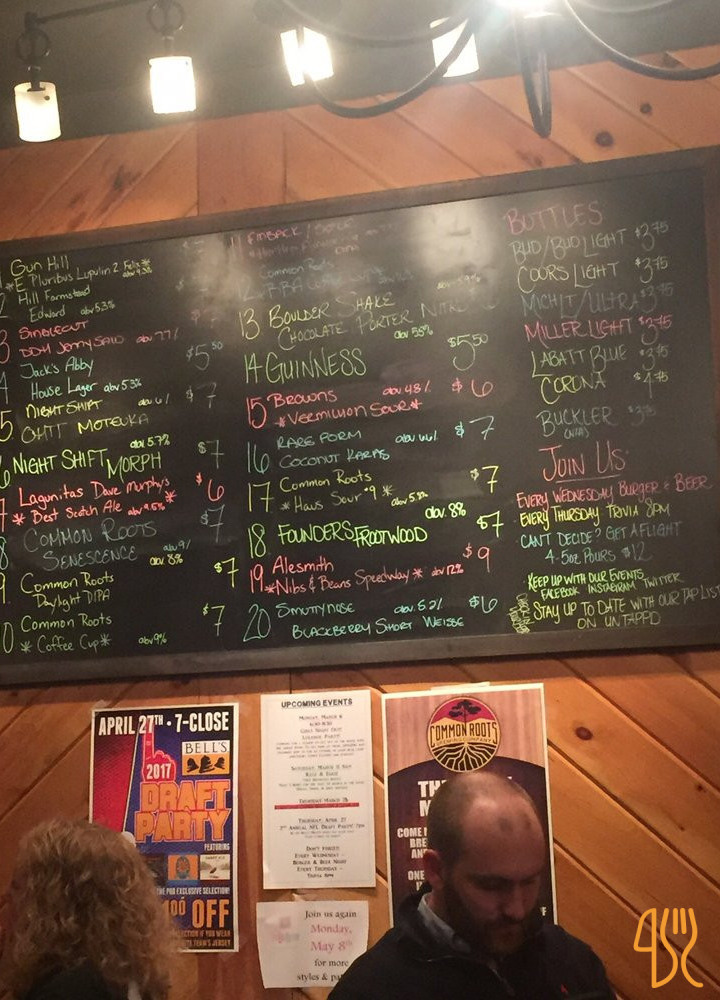 Gun Hill
*E Pluribus Lupulin 2 Felix*
abv 9.3%
2 Hill Farmstead
Edward abv 5.3%
3 SINGLECUT
DDH JENNY SAID abv 7.7%
Jack's Abby $5.50
House Lager abv 5.3%
5 NIGHT SHIFT abv 6% $7
OHTT MOTEUKA
abv 5.7%
NIGHT SHIFT MORPH $7
7 Lagunitas Dave Murphys $6
* Best Scotch Ale abv 9.5% *
8 COMMON ROOTS $7
SENESCENCE abv 9%
abv 8%
9 Common Roots $7
Daylight DIPA
0 Common Roots $7
* Coffee Cup * abv 9%
11 FINBACK /
Common Roots
13 BOULDER SHAKE
CHOCOLATE PORTER NITRO
abv 5.5%
14 GUINNESS $5.50
15 BROWNS abv 4.8% $6
*VERMILLION SOUR*
16 RARE FORM abv 6.6% $7
COCONUT KARPIS
17 Common Roots $7
* Haus Sour #9 * abv 5.3%
abv 8%
18 FOUNDERS FROOTWOOD $7
19 Alesmith $9
*Nibs & Beans Speedway* abv 12%
20 SMUTTYNOSE abv 5.2% $6
BLACKBERRY SHORT WEISSE
BOTTLES
BUD/BUD LIGHT $3.75
COORS LIGHT $3.75
MICH LT/ULTRA $3.75
MILLER LIGHT $3.75
LABATT BLUE $3.75
CORONA $4.75
BUCKLER $3.75
(N/A)
JOIN US
EVERY WEDNESDAY BURGER & BEER
EVERY THURSDAY TRIVIA 8PM
CAN'T DECIDE? GET A FLIGHT
4-5oz POURS $12
KEEP UP WITH OUR EVENTS
FACEBOOK INSTAGRAM TWITTER
STAY UP TO DATE WITH OUR TAP LIST
ON UNTAPPD
APRIL 27TH • 7-CLOSE
BELL'S
2017
DRAFT
PARTY
FEATURING
THE POD EXCLUSIVE SELECTION!
OFF
SELECTION IF YOU WEAR
TEAM'S JERSEY
UPCOMING EVENTS
MONDAY, MARCH 6
GIRLS NIGHT OUT
SATURDAY MARCH 11
THURSDAY, APRIL 27
2ND ANNUAL NFL DRAFT PARTY 7PM
DON'T FORGET!
EVERY WEDNESDAY -
BURGER & BEER NIGHT
EVERY THURSDAY -
TRIVIA 8PM
Join us again
Monday,
May 8th
for more
styles &
COMMON ROOTS
BREWING COMPANY
COME